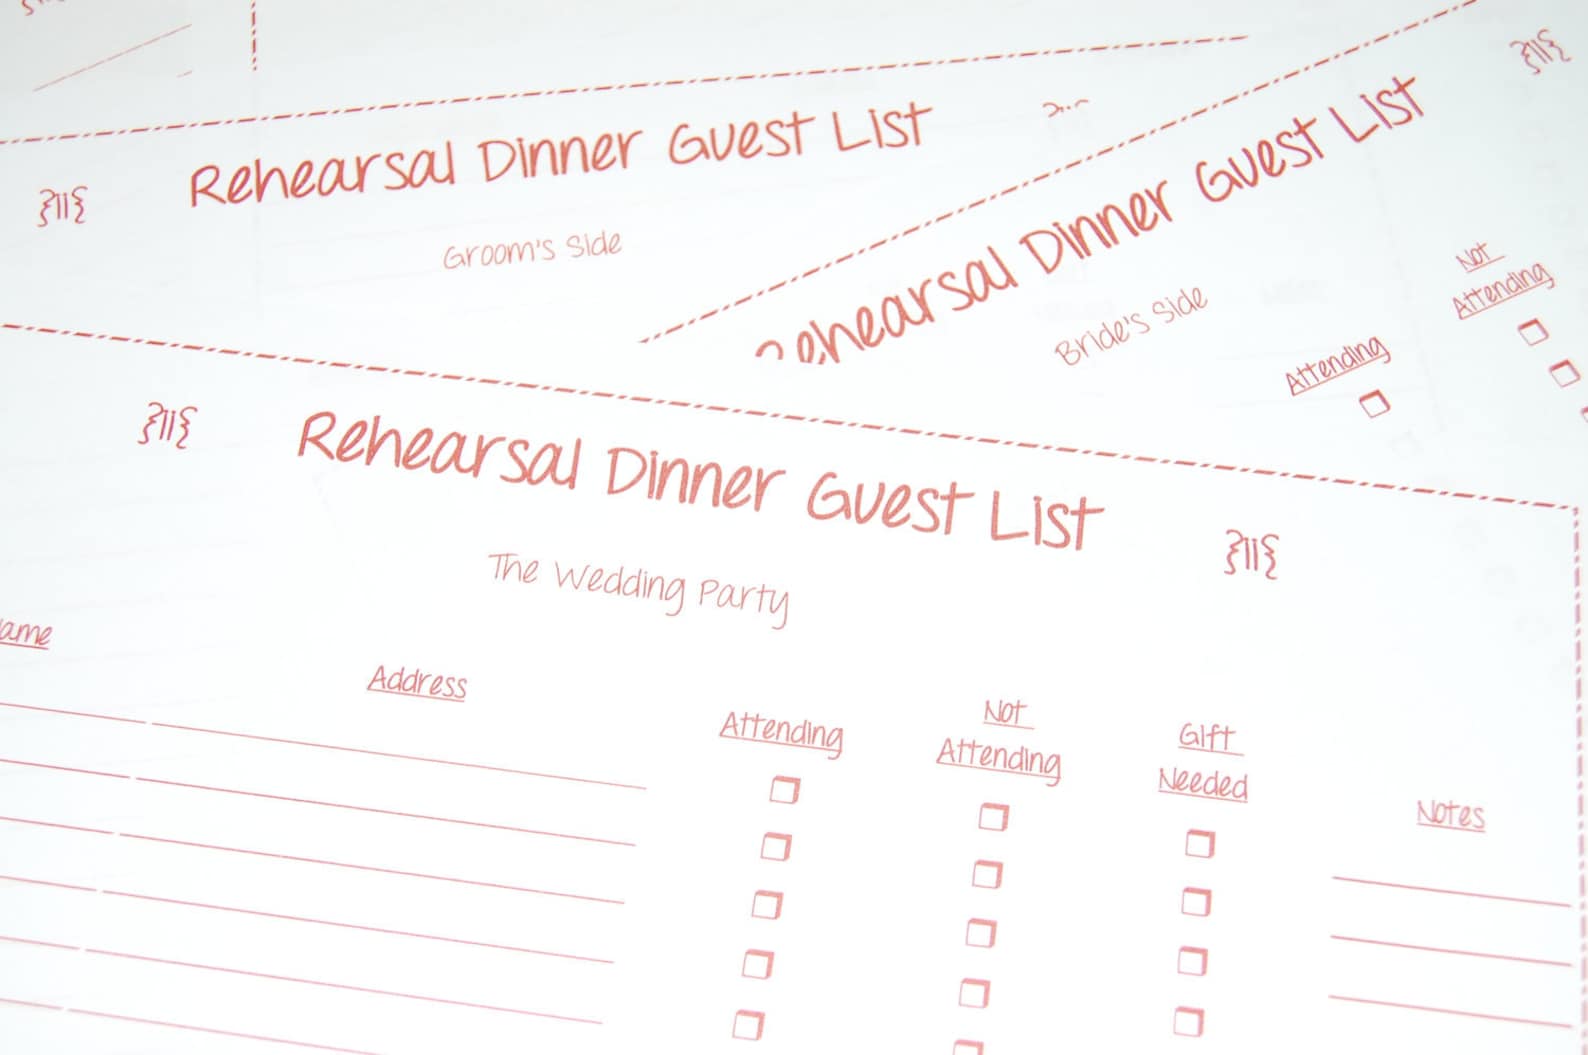 Rehearsal Dinner Guest List
Groom's Side
Rehearsal Dinner Guest List
Bride's Side
Attending
Not
Attending
Rehearsal Dinner Guest List
The Wedding Party
ame
Address
Attending
Not
Attending
Gift
Needed
Notes